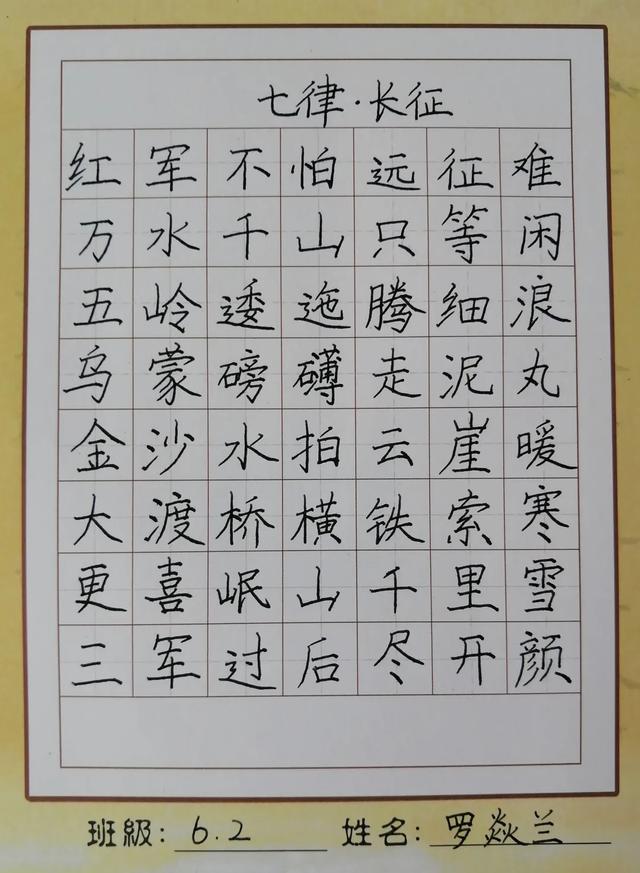 七律·长征
红军不怕远征难
万水千山只等闲
五岭逶迤腾细浪
乌蒙磅礴走泥丸
金沙水拍云崖暖
大渡桥横铁索寒
更喜岷山千里雪
三军过后尽开颜
班級: 6.2 姓名: 罗焱兰